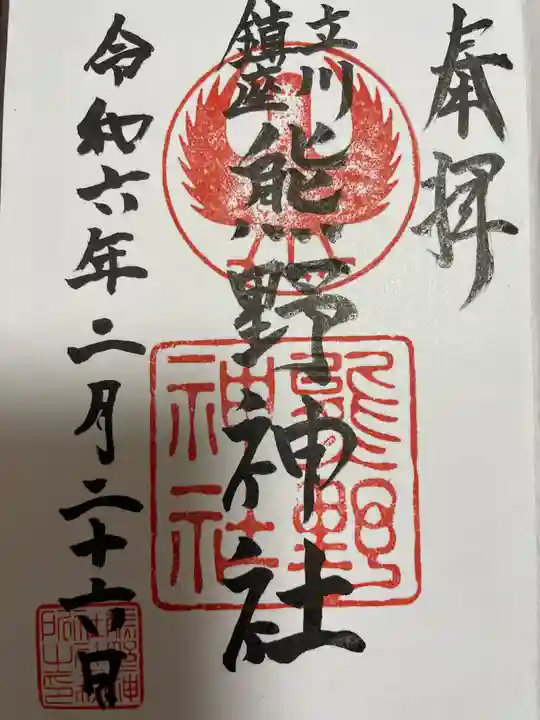 奉拝
立川
鎮座
熊野神社
熊野
神社
令和六年二月二十六日